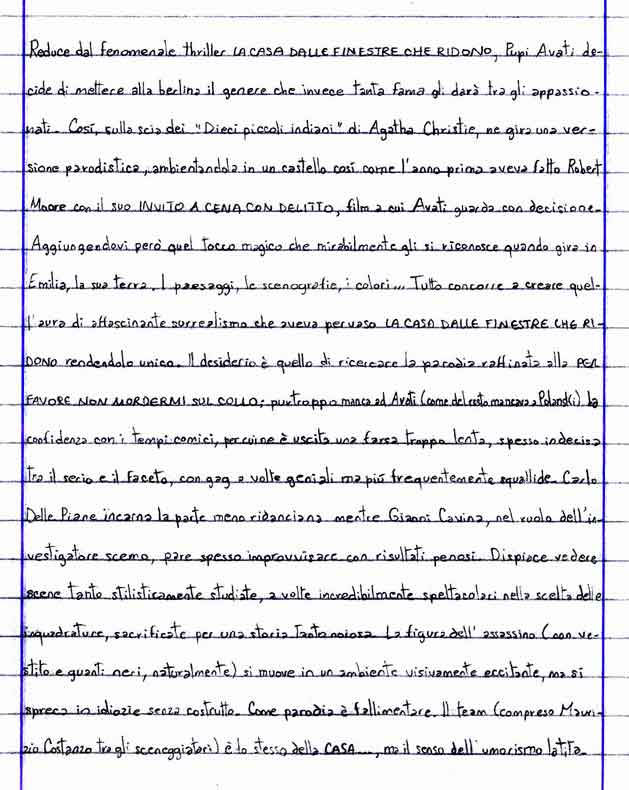 Reduce dal fenomenale thriller LA CASA DALLE FINESTRE CHE RIDONO, Pupi Avati de-
cide di mettere alla berlina il genere che invece tanta fama gli darà tra gli appassio-
nati. Così, sulla scia dei "Dieci piccoli indiani" di Agatha Christie, ne gira una ver-
sione parodistica, ambientandola in un castello così come l'anno prima aveva fatto Robert
Moore con il suo INVITO A CENA CON DELITTO, film a cui Avati guarda con decisione.
Aggiungendovi però quel tocco magico che mirabilmente gli si riconosce quando gira in
Emilia, la sua terra. I paesaggi, le scenografie, i colori... Tutto concorre a creare quel-
l'aura di affascinante surrealismo che aveva pervaso LA CASA DALLE FINESTRE CHE RI-
DONO rendendolo unico. Il desiderio è quello di ricercare la parodia raffinata alla PER
FAVORE NON MORDERMI SUL COLLO; purtroppo manca ad Avati (come del resto mancava a Polanski) la
confidenza con i tempi comici, per cui ne è uscita una farsa troppo lenta, spesso indecisa
tra il serio e il faceto, con gag a volte geniali ma più frequentemente squallide. Carlo
Delle Piane incarna la parte meno ridanciana mentre Gianni Cavina, nel ruolo dell'in-
vestigatore scemo, pare spesso improvvisare con risultati penosi. Dispiace vedere
scene tanto stilisticamente studiate, a volte incredibilmente spettacolari nella scelta delle
inquadrature, sacrificate per una storia tanto noiosa. La figura dell'assassino (con ve-
stito e guanti neri, naturalmente) si muove in un ambiente visivamente eccitante, ma si
spreca in idiozie senza costrutto. Come parodia è fallimentare. Il team (compreso Mauri-
zio Costanzo tra gli sceneggiatori) è lo stesso della CASA..., ma il senso dell'umorismo latita.